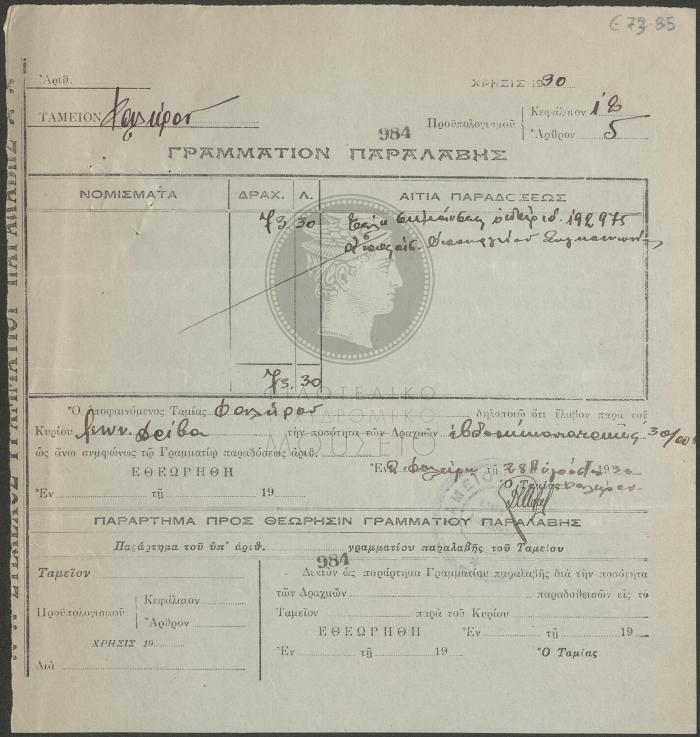 C 73-85
Ἀριθ.
ΧΡΗΣΙΣ 1930
ΤΑΜΕΙΟΝ Φαλήρου
Προϋπολογισμοῦ
Κεφάλαιον 18
Ἄρθρον 5
984
ΓΡΑΜΜΑΤΙΟΝ ΠΑΡΑΛΑΒΗΣ
ΝΟΜΙΣΜΑΤΑ ΔΡΑΧ. Λ. ΑΙΤΙΑ ΠΑΡΑΔΟΣΕΩΣ
73 30 σημάνσεως 192975
73. 30
ΦΙΛΟΤΕΛΙΚΟ
ΤΑΧΥΔΡΟΜΙΚΟ
ΜΟΥΣΕΙΟ
Ὁ ὑποφαινόμενος Ταμίας Φαλήρου δηλοποιῶ ὅτι ἔλαβον παρὰ τοῦ
Κυρίου τὴν ποσότητα τῶν Δραχμῶν 30/00
ὡς ἄνω συμφώνως τῷ Γραμματίῳ παραδόσεως ἀριθ.
ΕΘΕΩΡΗΘΗ
Ἐν Φαλήρῳ τῇ 28 Αὐγούστου 1930
Ἐν τῇ 19
Ὁ Ταμίας Φαλήρου
ΠΑΡΑΡΤΗΜΑ ΠΡΟΣ ΘΕΩΡΗΣΙΝ ΓΡΑΜΜΑΤΙΟΥ ΠΑΡΑΛΑΒΗΣ
Παράρτημα τοῦ ὑπ' ἀριθ. 984 γραμματίου παραλαβῆς τοῦ Ταμείου
Ταμεῖον
Προϋπολογισμοῦ
Κεφάλαιον
Ἄρθρον
ΧΡΗΣΙΣ 19
Διὰ
Δεκτὸν ὡς παράρτημα Γραμματίου παραλαβῆς διὰ τὴν ποσότητα
τῶν Δραχμῶν παραδοθεισῶν εἰς τὸ
Ταμεῖον παρὰ τοῦ Κυρίου
ΕΘΕΩΡΗΘΗ Ἐν τῇ 19
Ἐν τῇ 19 Ὁ Ταμίας